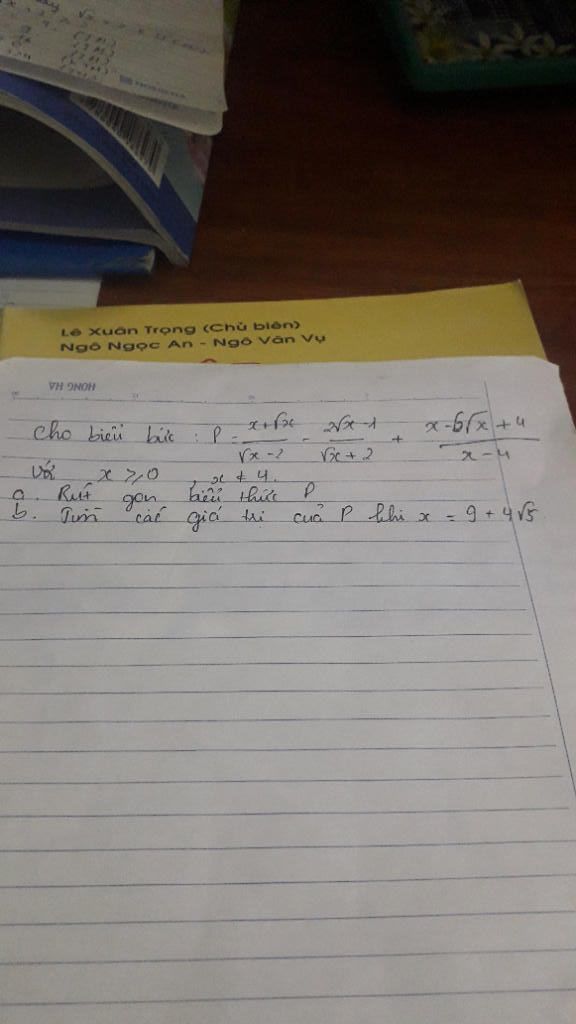 Lê Xuân Trọng (Chủ biên)
Ngô Ngọc An - Ngô Văn Vụ
HONG HA
Cho biểu bức : P = (x+√x)/(√x-2) - (2√x-1)/(√x+2) + (x-6√x+4)/(x-4)
với x ≥ 0 , x ≠ 4.
a. Rút gọn biểu thức P
b. Tìm các giá trị cuả P khi x = 9 + 4√5